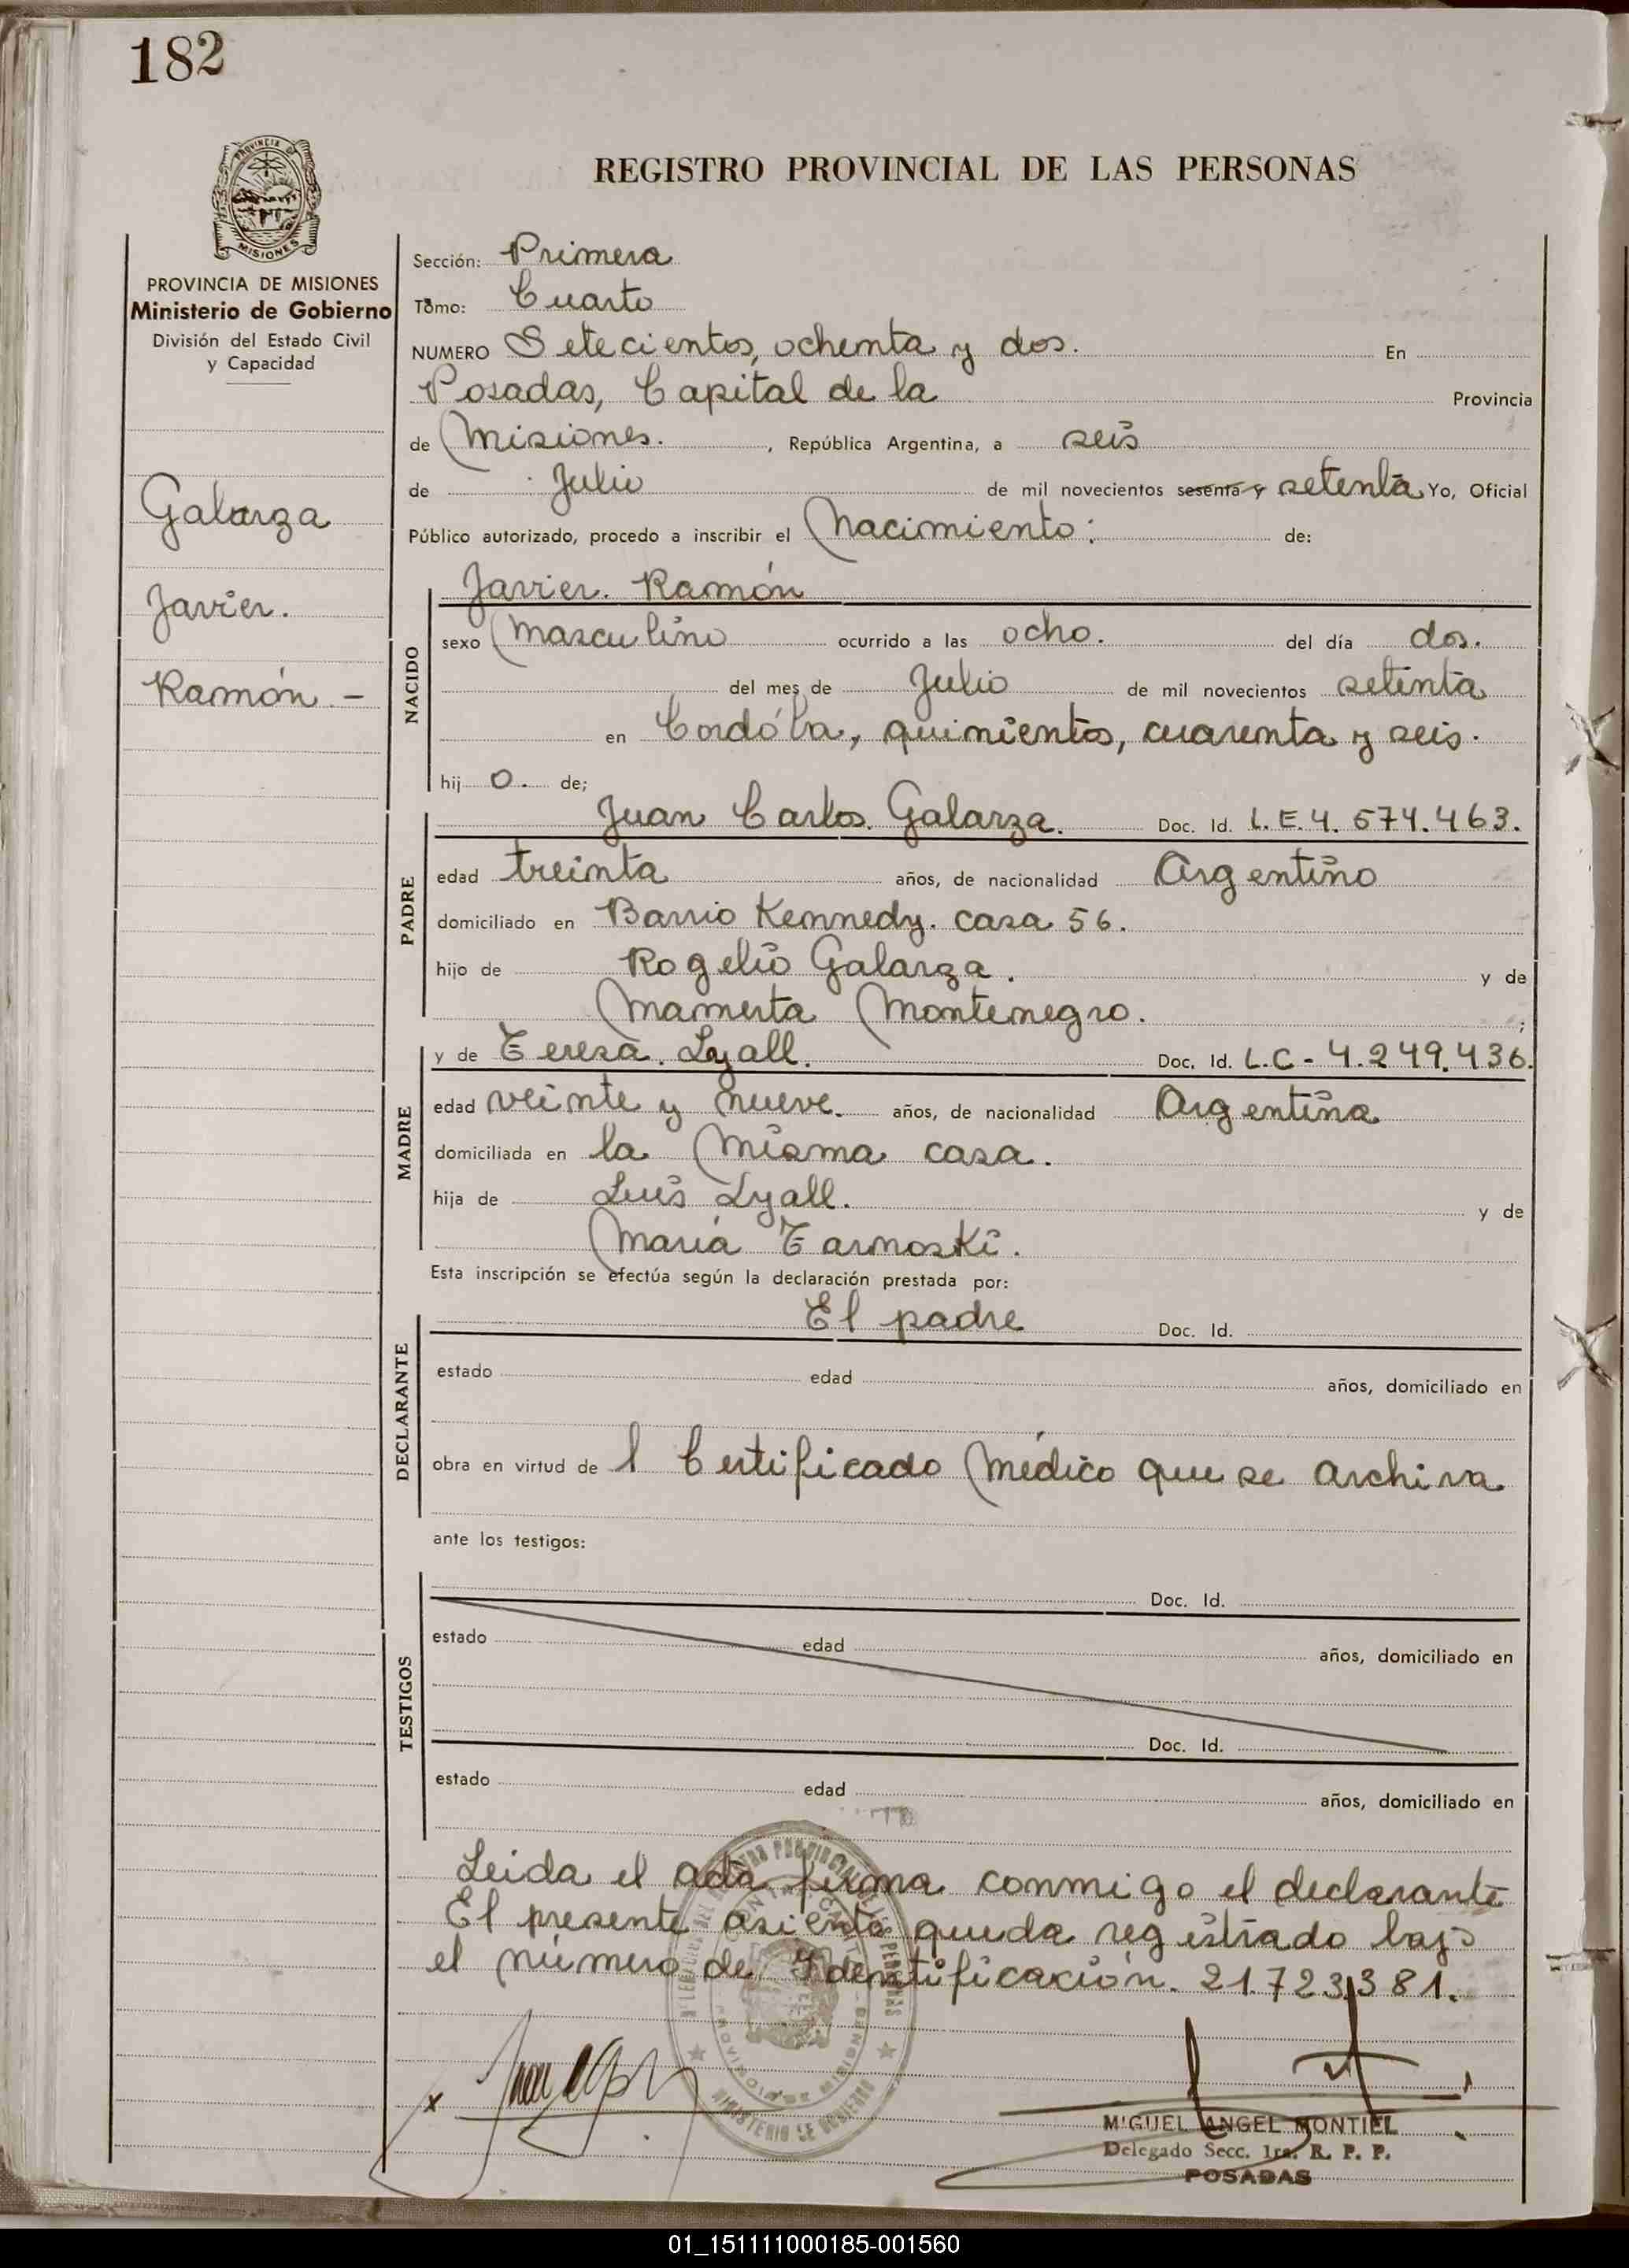 182
PROVINCIA DE
MISIONES
REGISTRO PROVINCIAL DE LAS PERSONAS
PROVINCIA DE MISIONES
Ministerio de Gobierno
División del Estado Civil
y Capacidad
Galarza
Javier.
Ramón -
Sección: Primera
Tomo: Cuarto
NUMERO Setecientos, ochenta y dos. En
Posadas, Capital de la Provincia
de Misiones. , República Argentina, a seis
de Julio de mil novecientos sesenta y setenta Yo, Oficial
Público autorizado, procedo a inscribir el Nacimiento: de:
NACIDO
Javier. Ramón
sexo Masculino ocurrido a las ocho. del día dos.
del mes de Julio de mil novecientos setenta
en Cordóba, quinientos, cuarenta y seis.
hij o. de;
PADRE
Juan Carlos. Galarza. Doc. Id. L.E. 4. 574.463.
edad treinta años, de nacionalidad Argentino
domiciliado en Barrio Kennedy. casa 56.
hijo de Rogelio Galarza. y de
Mamerta Montenegro. ;
MADRE
y de Teresa. Lyall. Doc. Id. L.C - 4.249.436.
edad veinte y nueve. años, de nacionalidad Argentina
domiciliada en la Misma casa.
hija de Luis Lyall. y de
María Tarnoski.
Esta inscripción se efectúa según la declaración prestada por:
DECLARANTE
El padre Doc. Id.
estado edad años, domiciliado en
obra en virtud de l Certificado Médico que se archiva
ante los testigos:
TESTIGOS
Doc. Id.
estado edad años, domiciliado en
Doc. Id.
estado edad años, domiciliado en
Leida el acta firma conmigo el declarante
El presente asiento queda registrado bajo
el número de Identificación. 21.723.381.
x
MIGUEL ANGEL MONTIEL
Delegado Secc. 1ra. R. P. P.
POSADAS
MINISTERIO DE GOBIERNO
01_151111000185-001560